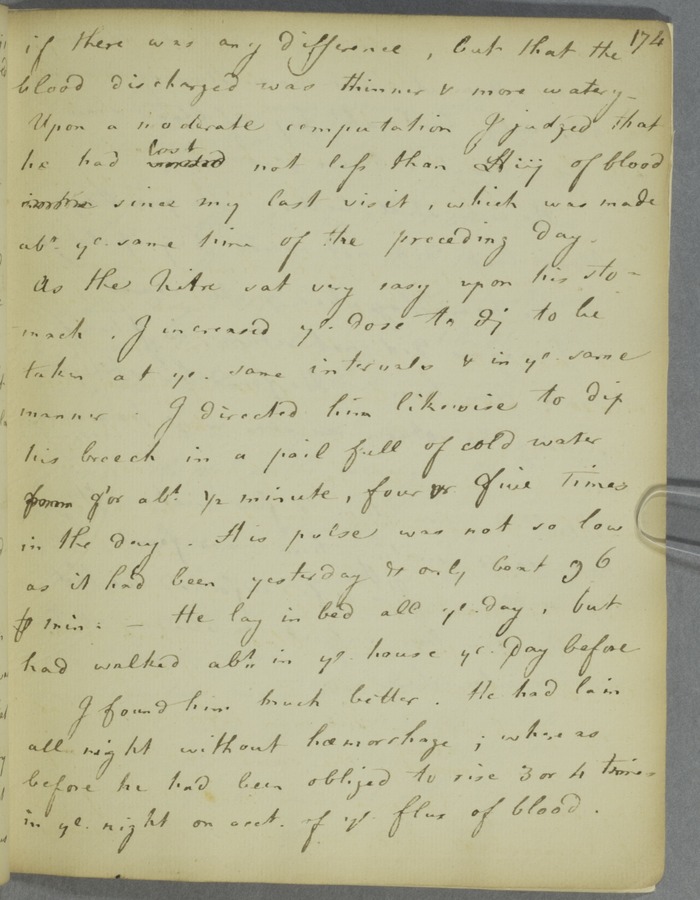 174
if there was any difference, but that the
blood discharged was thinner & more watery
Upon a moderate computation I judged that
he had lost not less than ℔iij of blood
since my last visit, which was made
abt. ye. same time of the preceding day.
As the Nitre sat very easy upon his sto-
mach. I increased ye. dose to ʒj to be
taken at ye. same intervals & in ye. same
manner. I directed him likewise to dip
his breech in a pail full of cold water
for abt. ½ minute, four or five times
in the day. His pulse was not so low
as it had been yesterday & only beat 96
℘ min: - He lay in bed all ye. day, but
had walked abt. in ye. house ye. Day before
I found him much better. He had lain
all night without hæmorrhage; whereas
before he had been obliged to rise 3 or 4 times
in ye. night on acct. of ye. flux of blood.